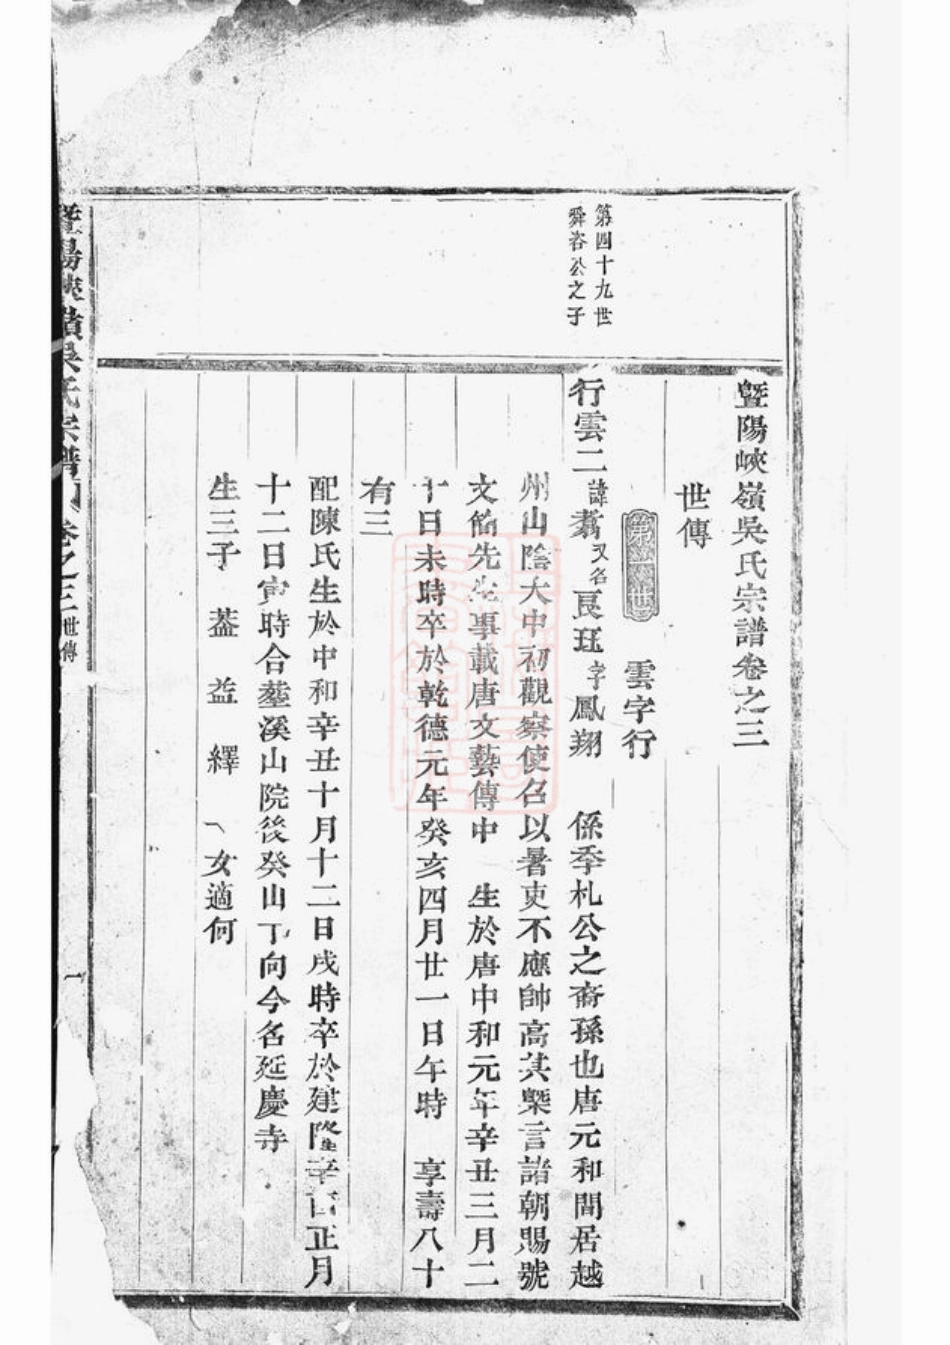 暨陽峽嶺吳氏宗譜卷之三
世傳
第一世 雲字行
第四十九世
舜咨公之子
行雲二諱翥又名良珏字鳳翔 係季札公之裔孫也唐元和間居越
州山陰大中初觀察使召以署吏不應帥高其槩言諸朝賜號
文簡先生事載唐文藝傳中 生於唐中和元年辛丑三月二
十日未時卒於乾德元年癸亥四月廿一日午時 享壽八十
有三
配陳氏生於中和辛丑十月十二日戌時卒於建隆辛酉正月
十二日寅時合塟溪山院後癸山丁向今名延慶寺
生三子 葢 益 繹 一女適何
暨陽峽嶺吳氏宗譜 卷之三 世傳 一